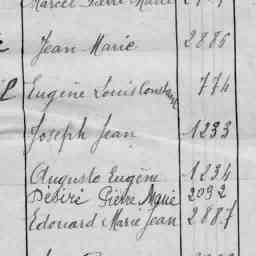 Marcel Pierre Marie
Jean Marie 2886
Eugène Louis Constant 774
Joseph Jean 1233
Auguste Eugène 1234
Désiré Pierre Marie 2032
Edouard Marie Jean 2887